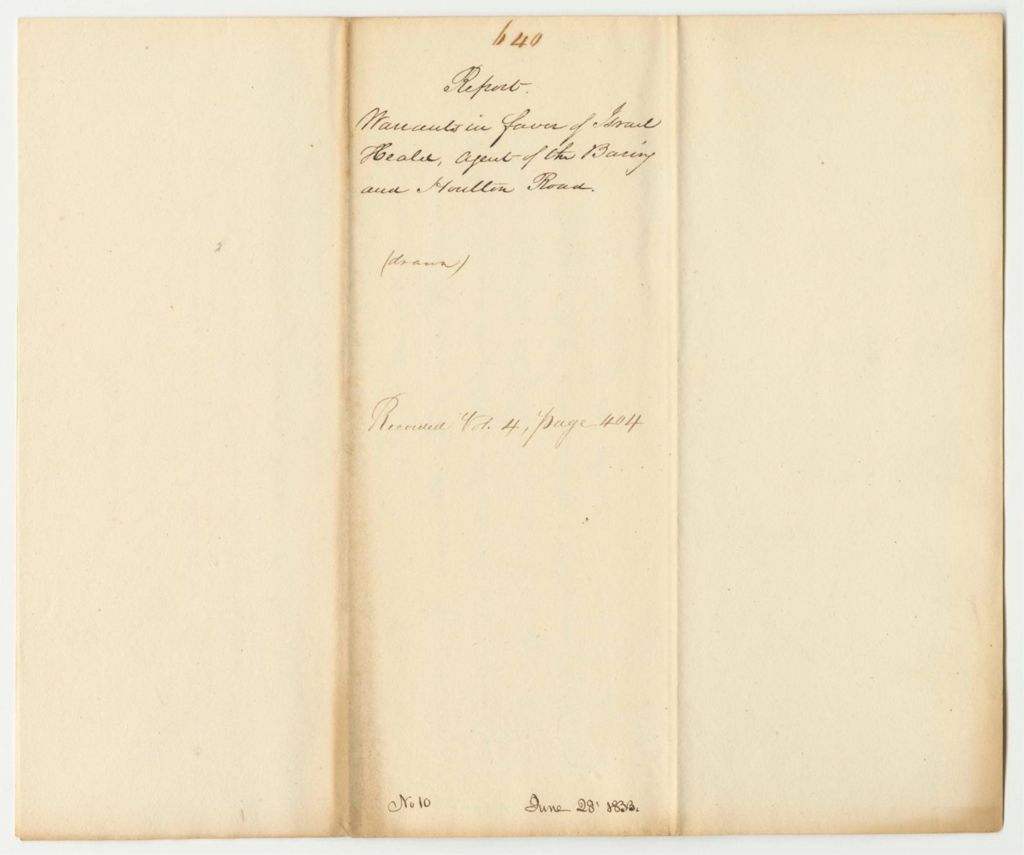 640
Report.
Warrants in favor of Israel
Heald, Agent of the Baring
and Houlton Road.
(drawn)
Recorded Vol. 4, page 404
No 10
June 28' 1833.